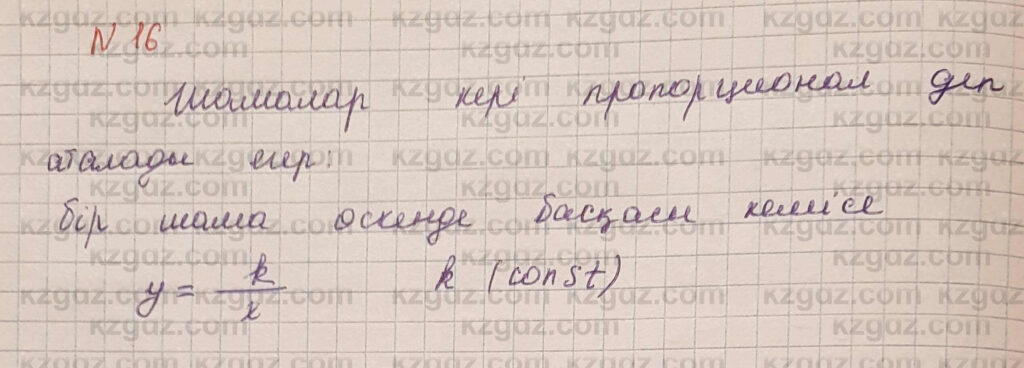 N 16
Шамалар кері пропорционал деп
аталады егер:
бір шама өскенде басқасы кемісе
y = k/x k (const)
kzgaz.com